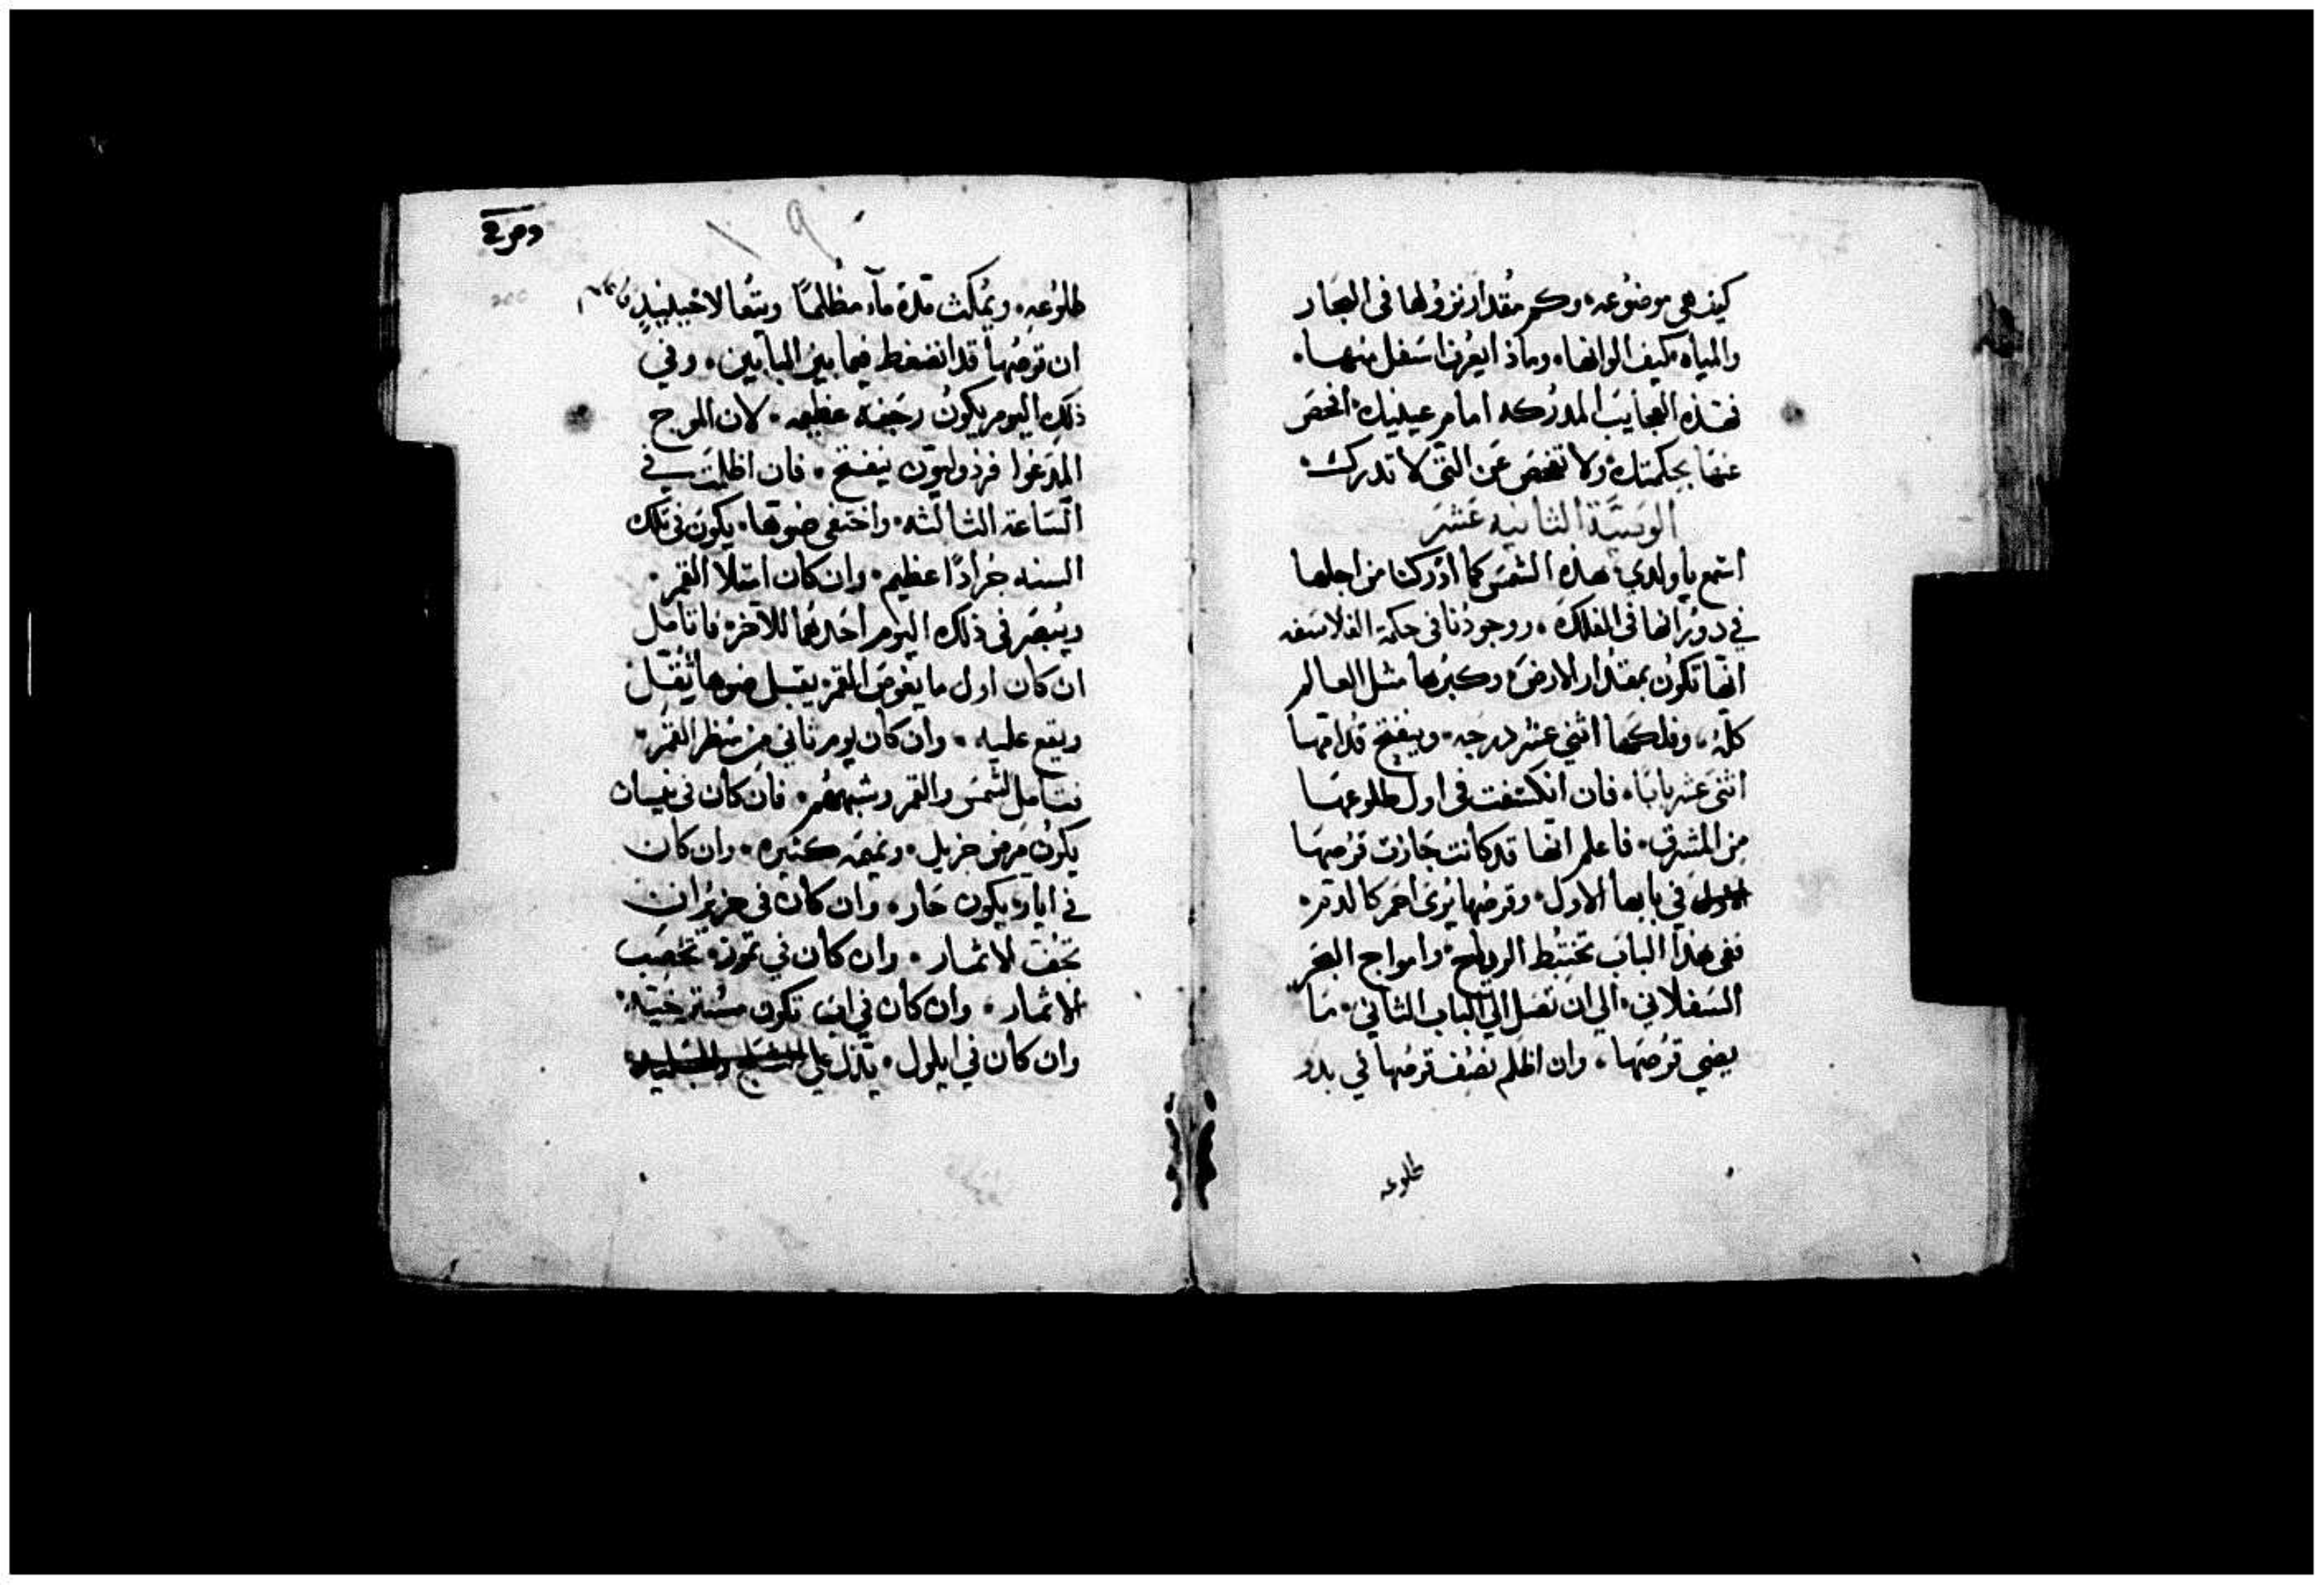 كيف هي موضوعه، وكم مقدار نزولها في البحار
والمياه كيف الوانها، وماذا يعرف اسفل منها.
فهذه العجايب المدركه امام عينيك افحص
عنها بحكمتك ولا تفحص عن التي لا تدرك.
الوصيَّة الثانيه عَشَر
استمع ياولدي هذه الشمس كما ادركنا من اجلها
في دورانها في الفلك، ووجودنا في حكمة الفلاسفه
انها تكون بمقدار الارض وكبرها مثل العالم
كله، وفلكها اثني عشر درجه، وينفتح قدامها
اثني عشر بابًا، فان انكسفت في اول طلوعها
من المشرق، فاعلم انها قد كانت جازت قرصها
في بابها الاول، وقرصها يرى احمر كالدم.
ففي هذا الباب تختبط الرياح وامواج البحر
السفلاني، الي ان تصل الي الباب الثاني، ما
يضي قرصها، وان اظلم نصف قرصها في بدو
طلوعه
طلوعه، ويمكث مدة ماء مظلمًا
ان قرصها قد انضغط فيما بين البابين، وفي
ذلك اليوم يكون رجفه عظيمه، لان الموج
المدعوا ينفتح، فان اظلمت في
الساعة الثالثه، واختفى ضوها، يكون في تلك
السنه جرادًا عظيم، وان كان امتلا القمر.
ويبصر في ذلك اليوم احدهما للاخر فاتامل
ان كان اول ما يغوص القمر يقبل ضوها ثقيل
ويقع عليه، وان كان يوم ثاني من منظر القمر.
فتامل الشمس والقمر وشبههم، فان كان في نيسان
يكون مرض جزيل، ونميمه كثيره، وان كان
في ايار يكون حار، وان كان في حزيران
تجف الاثمار، وان كان في تموز تخصب
الاثمار، وان كان في اب تكون مسترخيه.
وان كان في ايلول، يدل علي الثلج والجليد